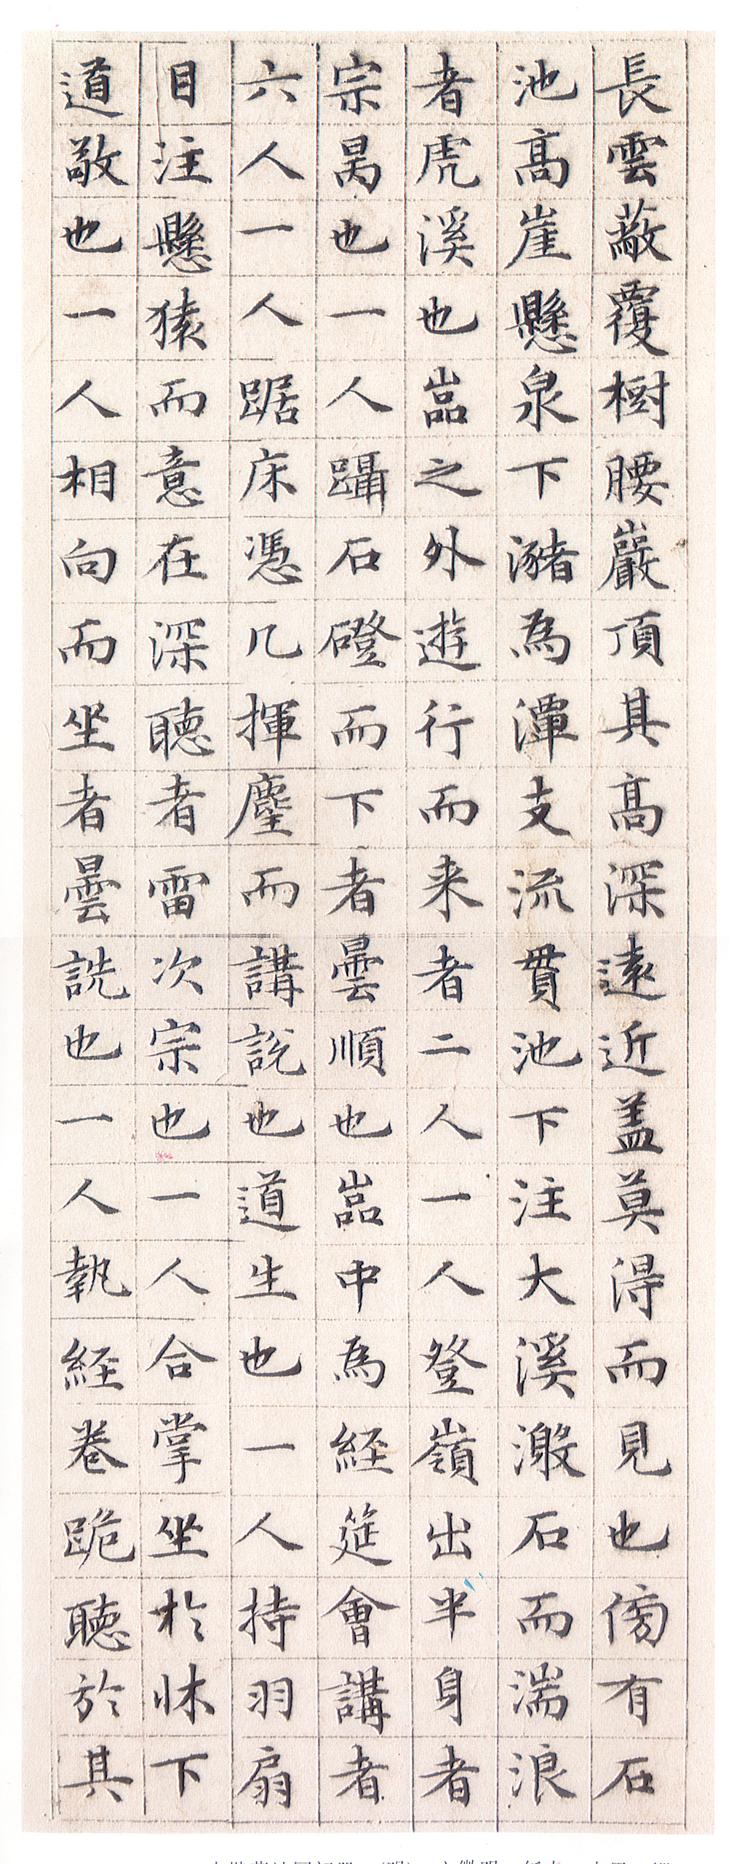 長雲蔽覆樹腰巖頂其高深遠近盖莫得而見也傍有石
池高崖懸泉下瀦為潭支流貫池下注大溪激石而湍浪
者虎溪也嵓之外遊行而来者二人一人登嶺出半身者
宗昺也一人躡石磴而下者曇順也嵓中為経筵會講者
六人一人踞床憑几揮麈而講說也道生也一人持羽扇
目注懸猿而意在深聽者雷次宗也一人合掌坐於牀下
道敬也一人相向而坐者曇詵也一人執経卷跪聽於其